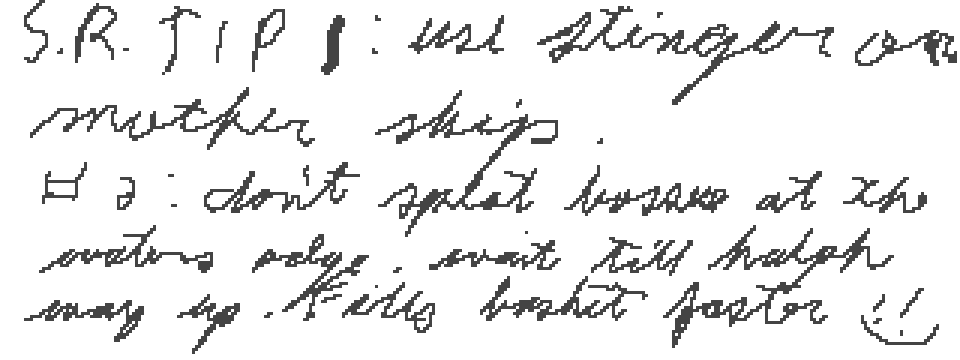 S.R. TIP 1: use stinger on
mother ship.
# 2: don't splat bosses at the
waters edge. wait till halph
way up. Kills bashit faster !!